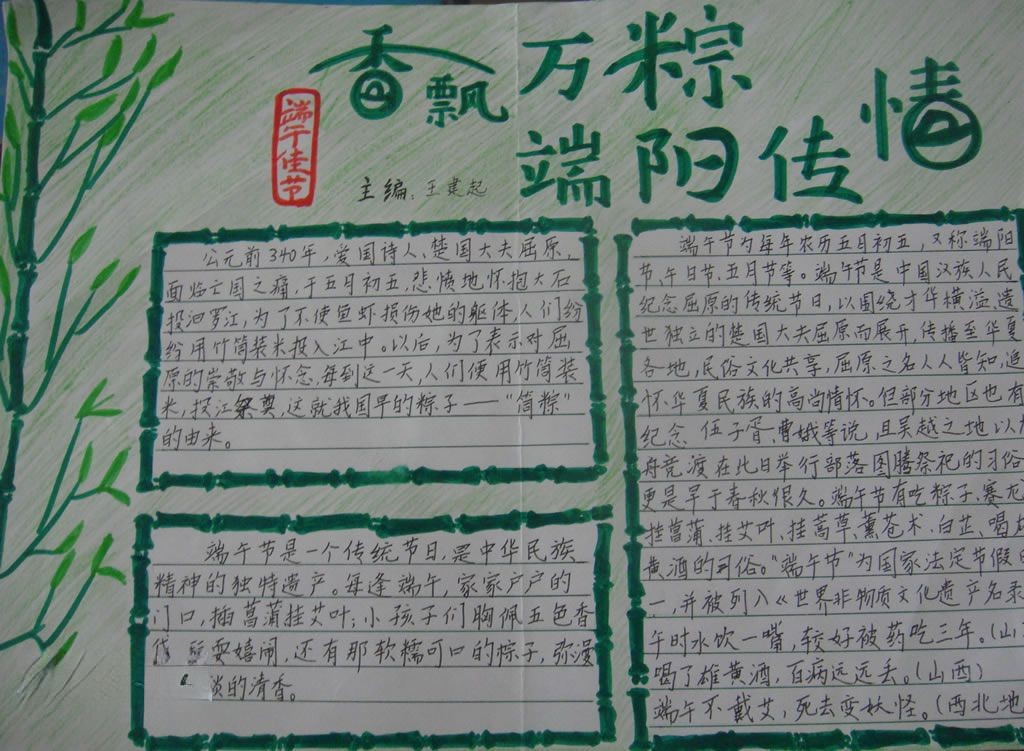 香飘万粽
端阳传情
端午佳节
主编：王建起
公元前340年，爱国诗人、楚国大夫屈原，
面临亡国之痛，于五月初五，悲愤地怀抱大石
投汨罗江，为了不使鱼虾损伤她的躯体，人们纷
纷用竹筒装米投入江中。以后，为了表示对屈
原的崇敬与怀念，每到这一天，人们便用竹筒装
米，投江祭奠，这就我国早的粽子——“筒粽”
的由来。
端午节是一个传统节日，是中华民族
精神的独特遗产。每逢端午，家家户户的
门口，插菖蒲挂艾叶；小孩子们胸佩五色香
耍嬉闹，还有那软糯可口的粽子，弥漫
淡的清香。
端午节为每年农历五月初五，又称端阳
节、午日节、五月节等。端午节是中国汉族人民
纪念屈原的传统节日，以围绕才华横溢、遗
世独立的楚国大夫屈原而展开，传播至华夏
各地，民俗文化共享，屈原之名人人皆知，追
怀华夏民族的高尚情怀。但部分地区也有
纪念 伍子胥、曹娥等说，且吴越之地以
舟竞渡在此日举行部落图腾祭祀的习俗
更是早于春秋很久。端午节有吃粽子、赛龙
挂菖蒲、挂艾叶、挂蒿草、薰苍术、白芷、喝
黄酒的习俗。“端午节”为国家法定节假
一，并被列入《世界非物质文化遗产名录
午时水饮一嘴，较好被药吃三年。（山
喝了雄黄酒，百病远远丢。（山西）
端午不戴艾，死去变妖怪。（西北地